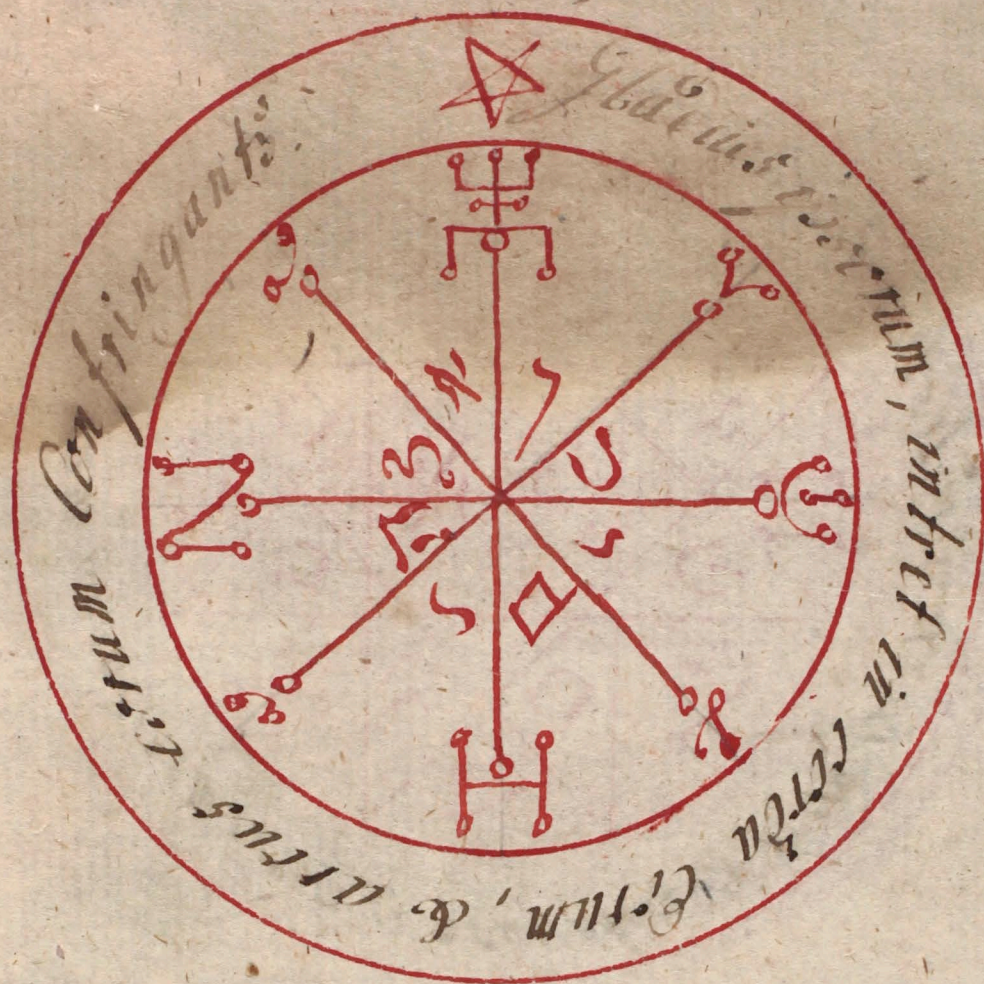 Gladius ipsorum, intret in corda Eorum, & arcus eorum Confringantr.